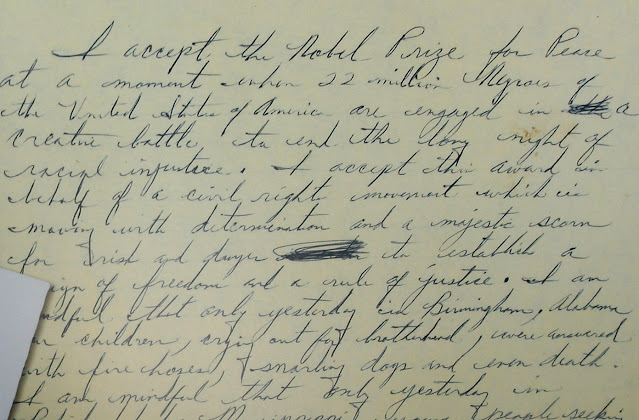 I accept the Nobel Prize for Peace
at a moment when 22 million Negroes of
the United States of America are engaged in a
creative battle to end the long night of
racial injustice. I accept this award in
behalf of a civil rights movement which is
moving with determination and a majestic scorn
for risk and danger to establish a
eign of freedom and a rule of justice. I am
ndful that only yesterday in Birmingham, Alabama
ur children, crying out for brotherhood, were answered
with fire hoses, snarling dogs and even death.
I am mindful that only yesterday in
Mississippi young people seeking